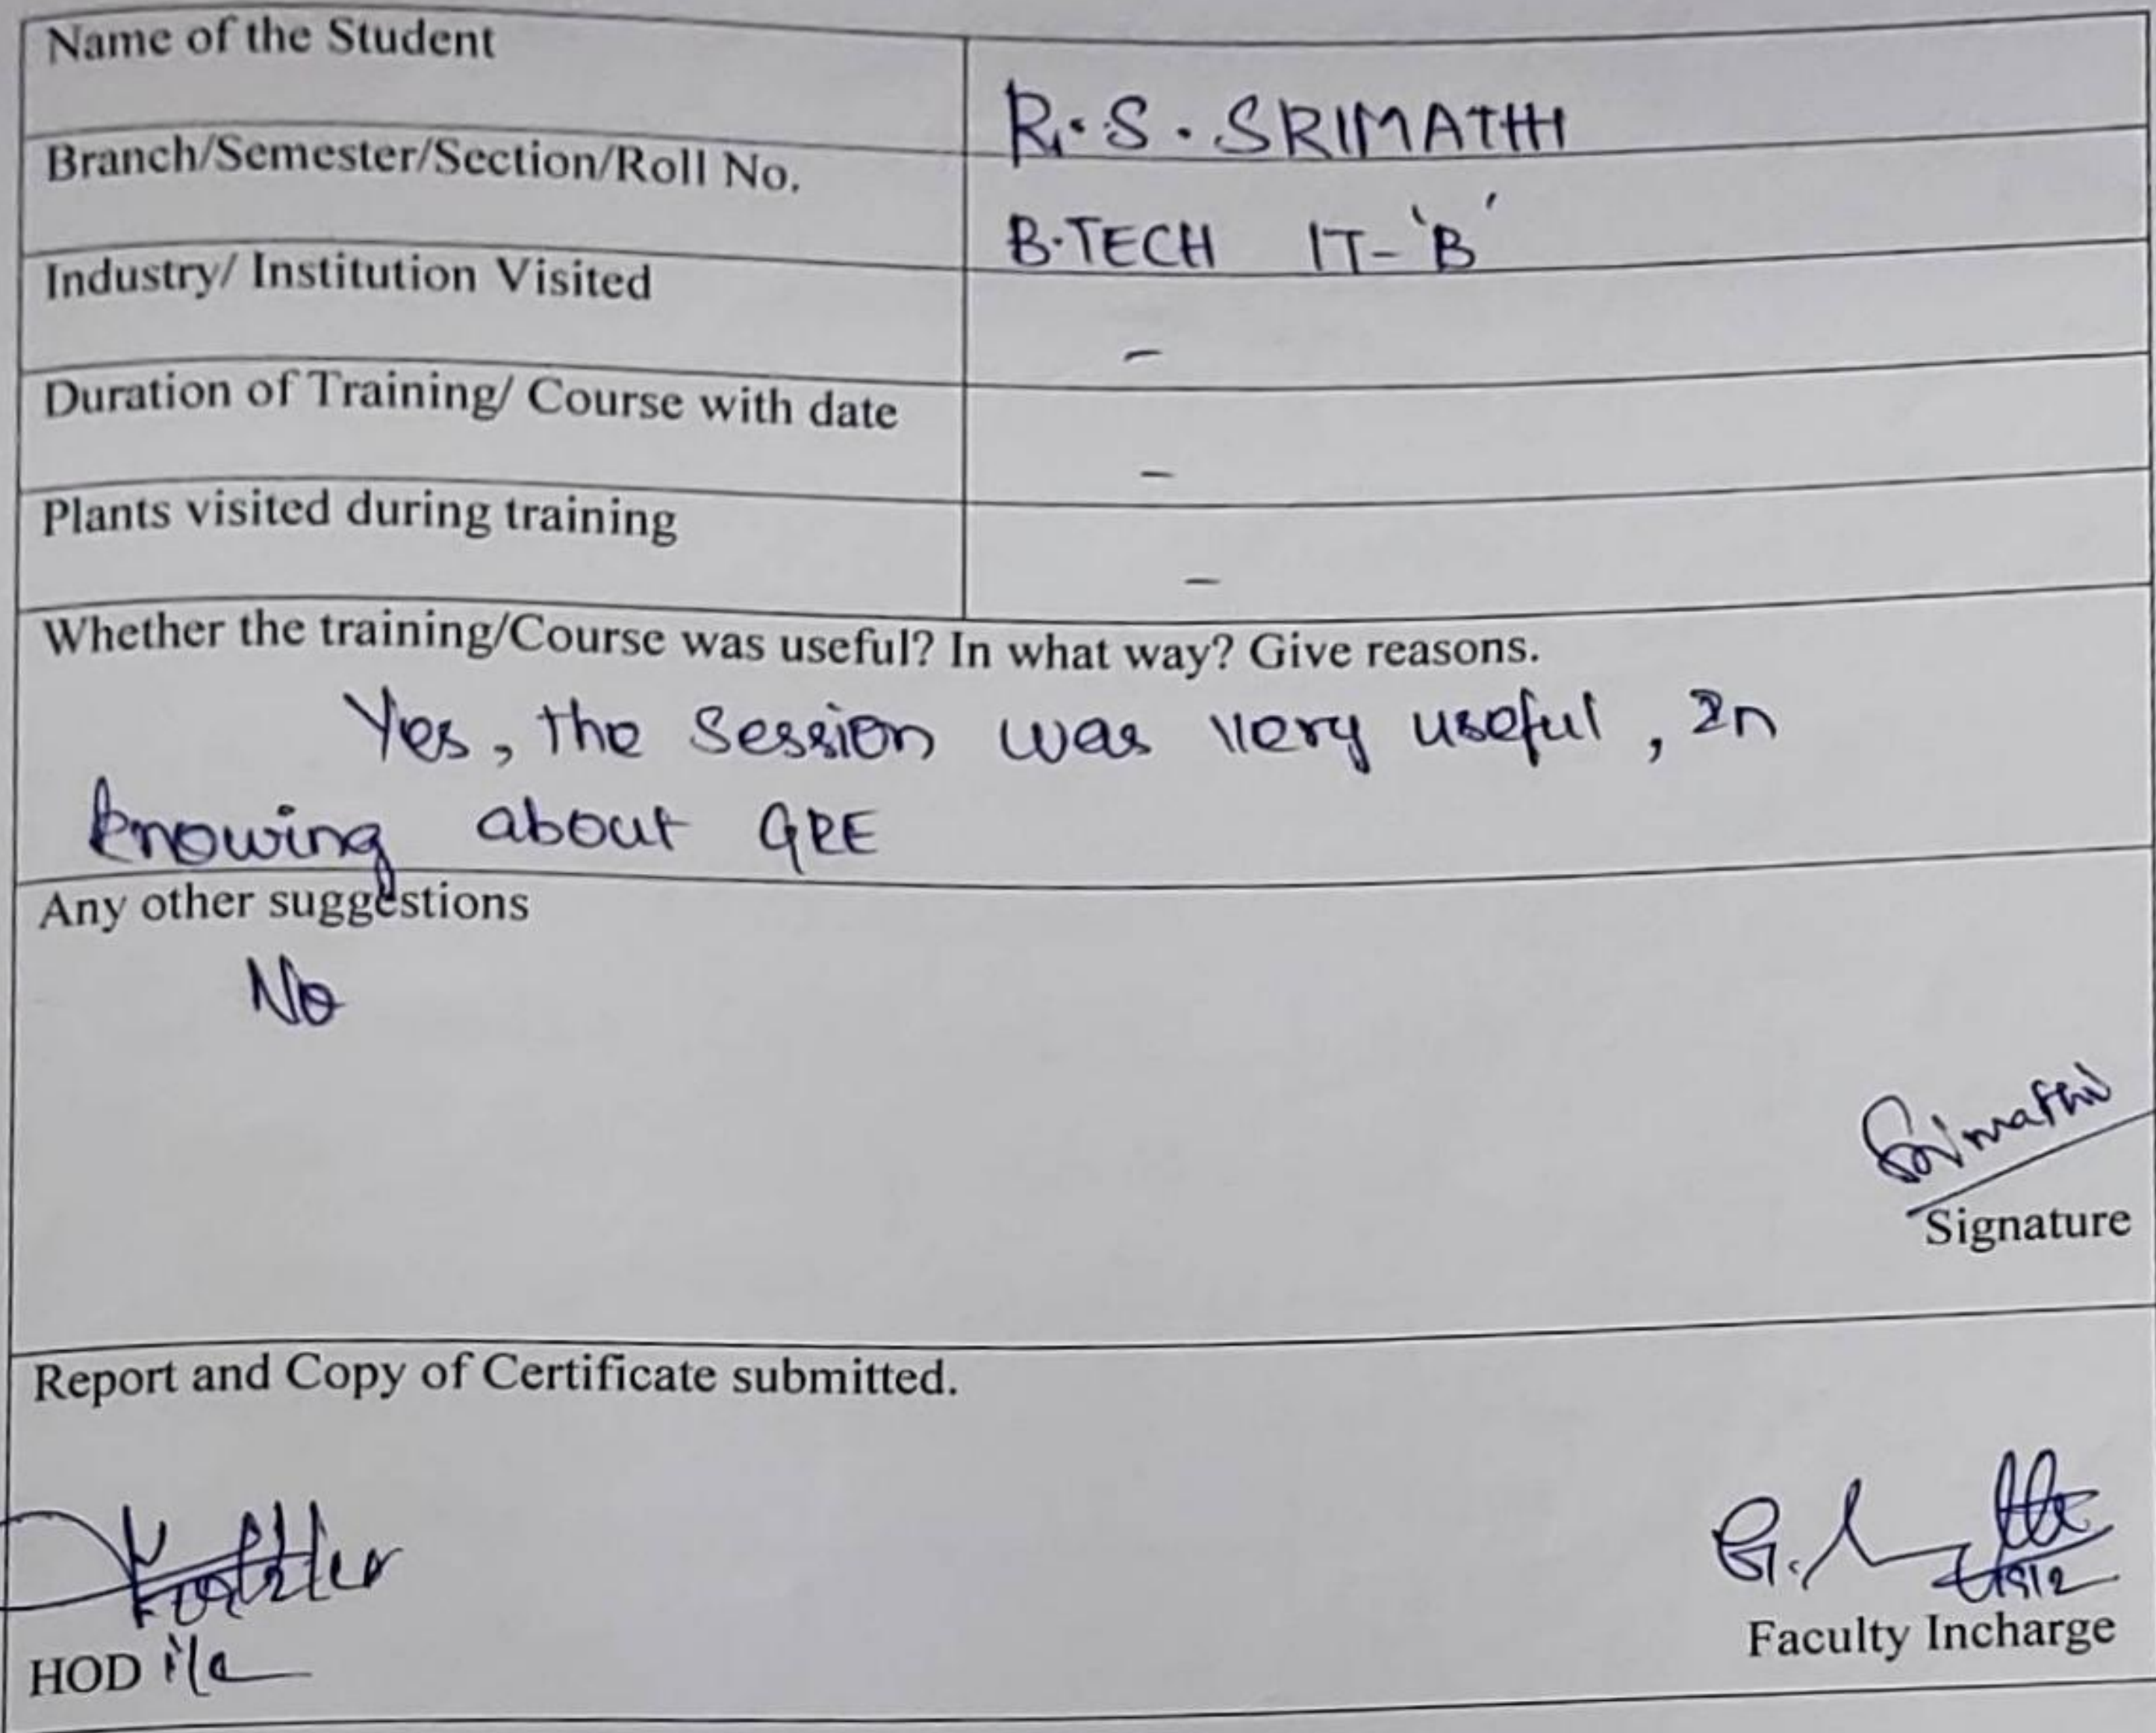 Name of the Student
R.S.SRIMATHI
Branch/Semester/Section/Roll No.
B.TECH IT-'B'
Industry/ Institution Visited
-
Duration of Training/ Course with date
-
Plants visited during training
-
Whether the training/Course was useful? In what way? Give reasons.
Yes, the session was very useful, in
knowing about GRE
Any other suggestions
No
Srimathi
Signature
Report and Copy of Certificate submitted.
HOD i/c
Faculty Incharge